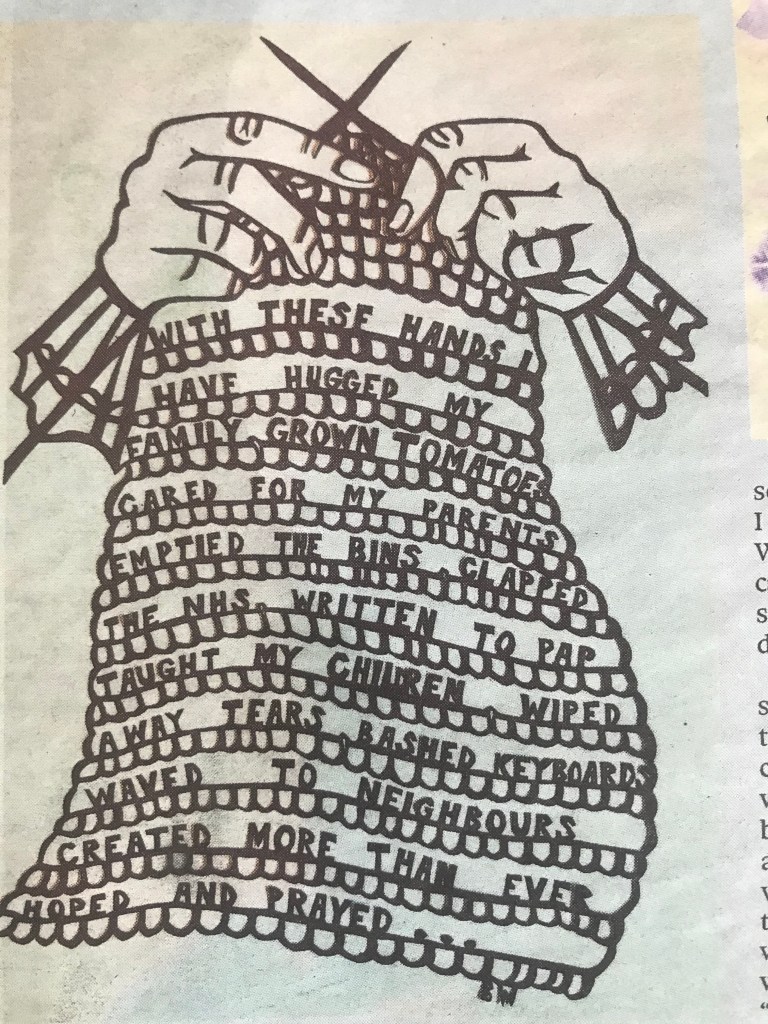 WITH THESE HANDS I
HAVE HUGGED MY
FAMILY, GROWN TOMATOES
CARED FOR MY PARENTS
EMPTIED THE BINS, CLAPPED
THE NHS, WRITTEN TO PAP
TAUGHT MY CHILDREN, WIPED
AWAY TEARS, BASHED KEYBOARDS
WAVED TO NEIGHBOURS
CREATED MORE THAN EVER
HOPED AND PRAYED...